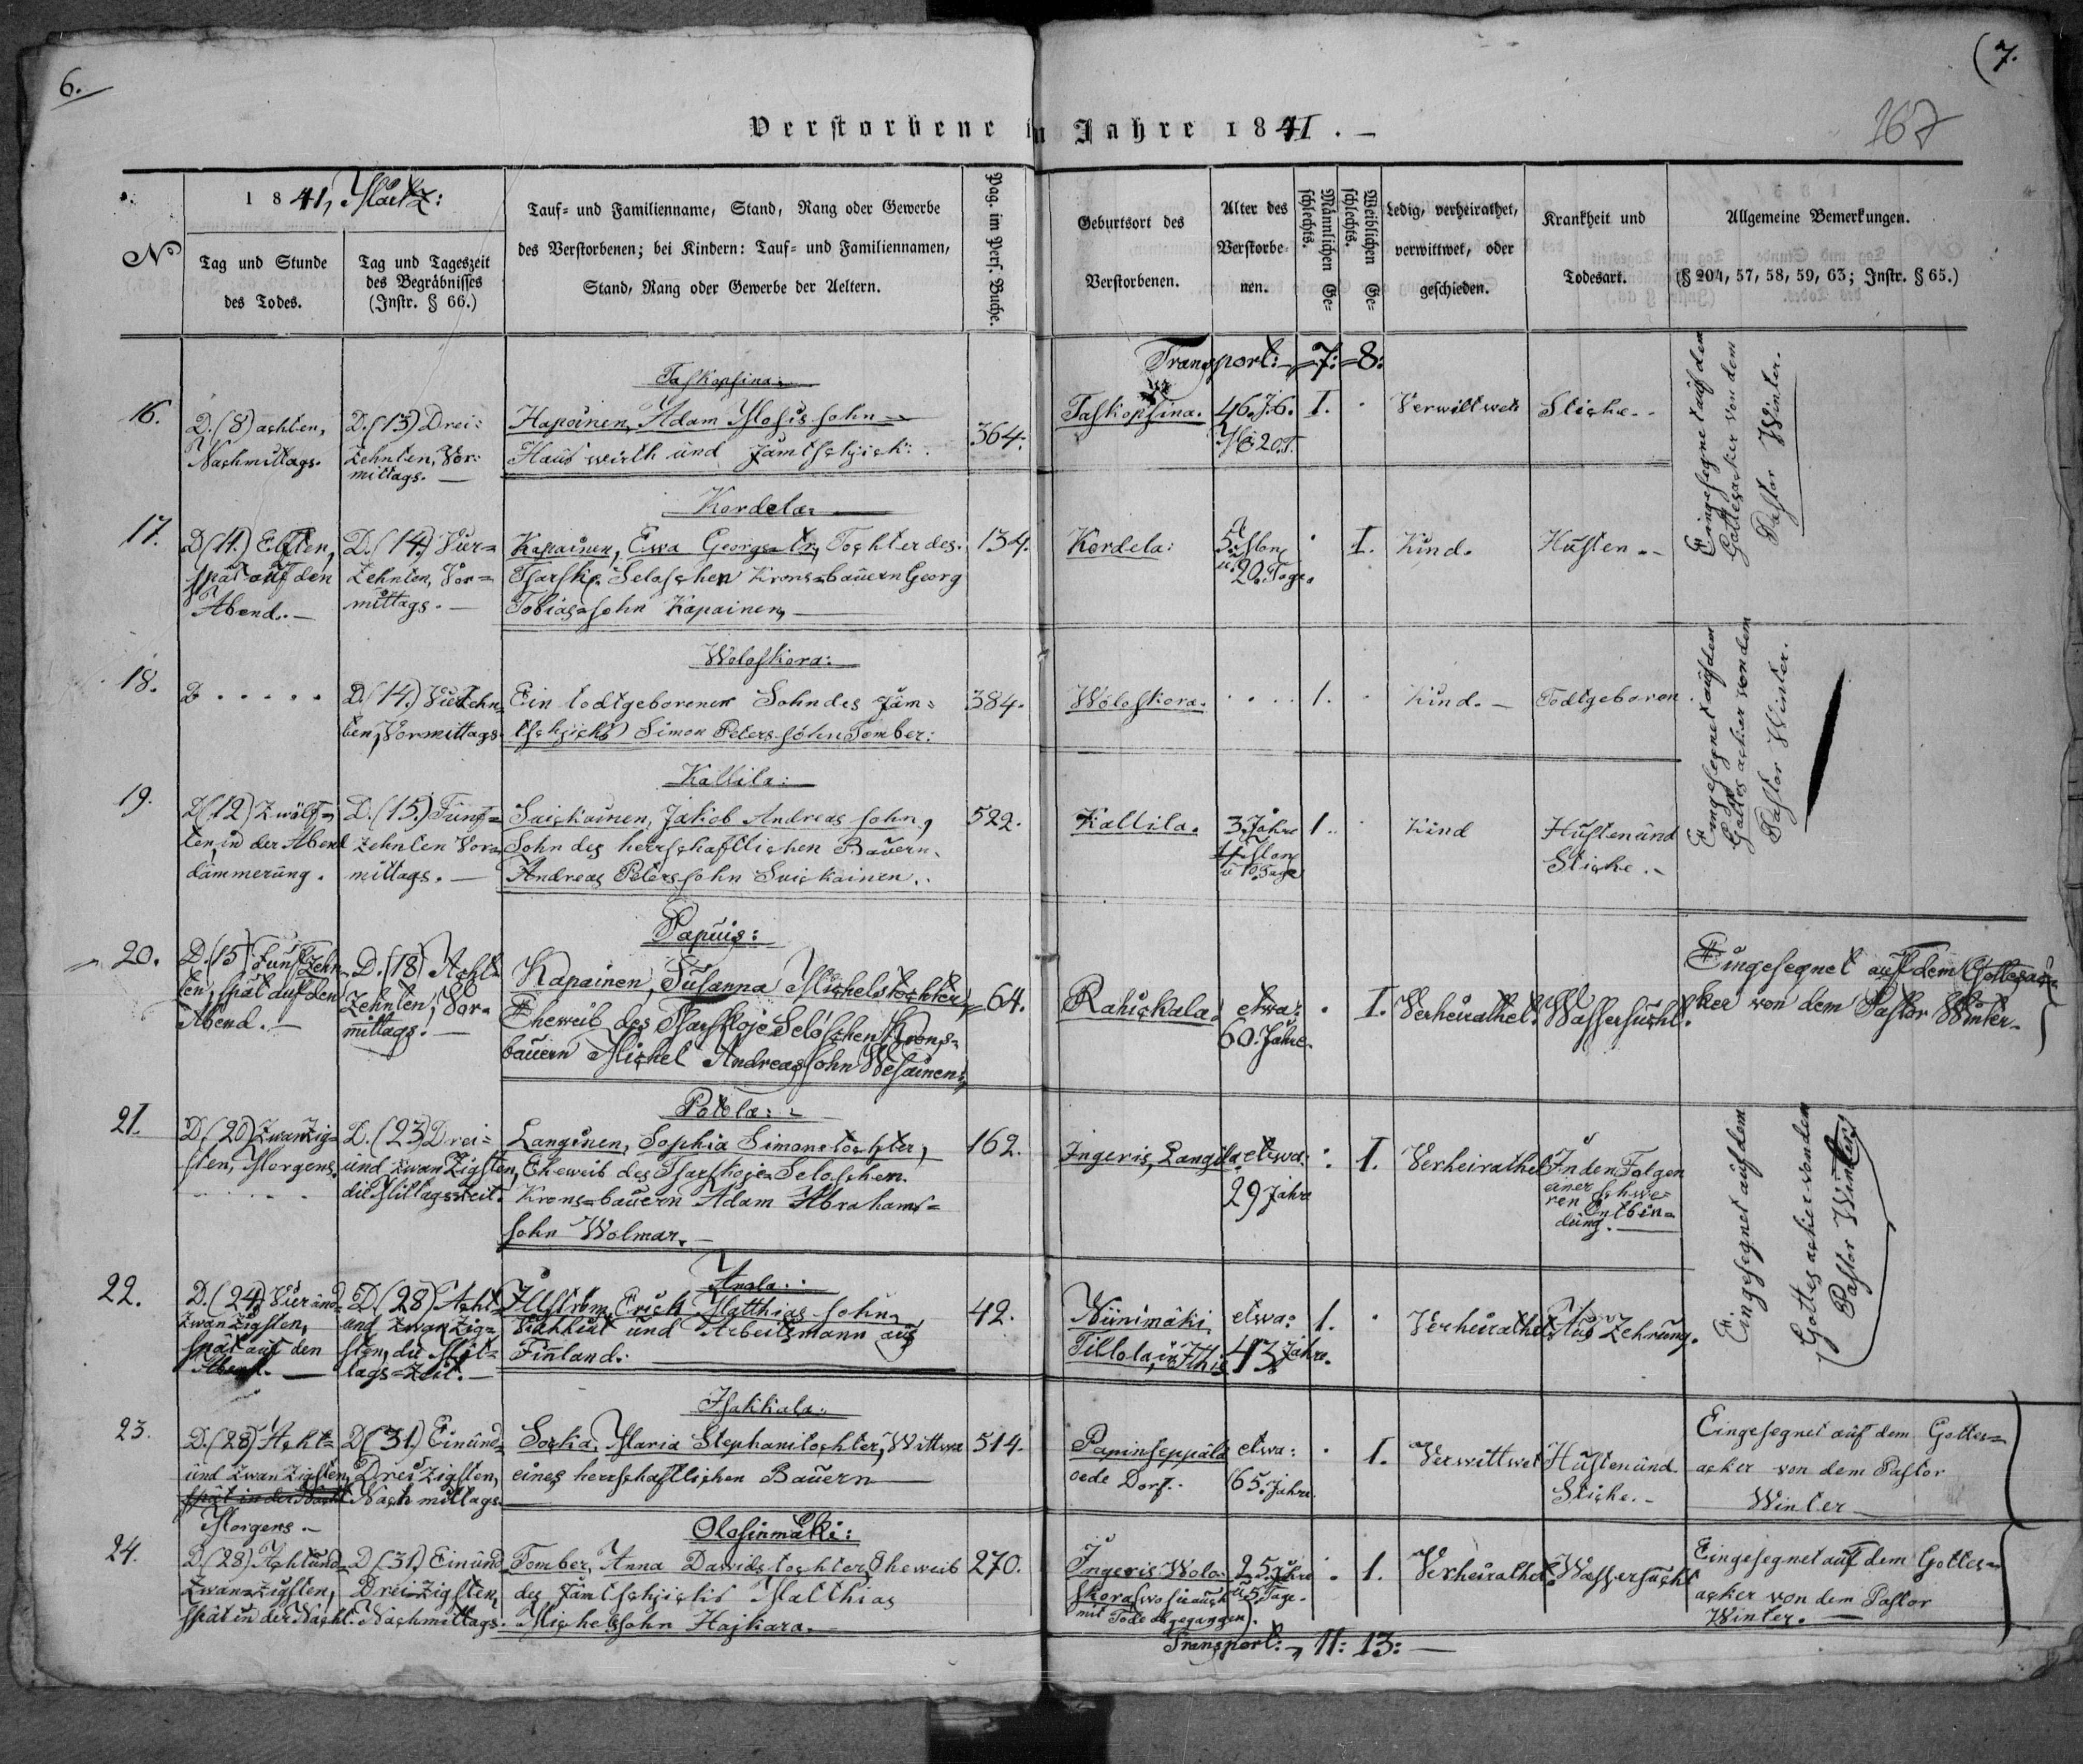 6.
(7.
167
Verstorbene im Jahre 1841.
No
1841, März:
Tag und Stunde
des Todes.
Tag und Tageszeit
des Begräbnisses
(Instr. § 66.)
Tauf- und Familienname, Stand, Rang oder Gewerbe
des Verstorbenen; bei Kindern: Tauf- und Familiennamen,
Stand, Rang oder Gewerbe der Aeltern.
Pag. im Pers. Buche.
Geburtsort des
Verstorbenen.
Alter des
Verstorbe-
nen.
Männlichen Ge-
schlechts.
Weiblichen Ge-
schlechts.
Ledig, verheirathet,
verwittwet, oder
geschieden.
Krankheit und
Todesart.
Allgemeine Bemerkungen.
(§ 204, 57, 58, 59, 63; Instr. § 65.)
Transport: 7: 8:
Taskopsina:
16.
D. (8) achten,
Nachmittags.
D. (13) Drei-
zehnten, Vor-
mittags.
Hapoinen, Adam Mosis sohn
Hauswirth und Jämtschick:
364.
Taskopsina.
46. J. 6.
M. 20. T.
I.
Verwittwet
Stiche.
Eingesegnet auf dem
Gottesacker von dem
Pastor Winter.
Kordela:
17.
D. (11.) Elften,
spät auf den
Abend.
D. (14.) Vier=
zehnten, Vor=
mittags.
Kapainen, Ewa Georgs-tr, Tochter des
Tsarsk. Seloschen Krons-bauern Georg
Tobias-sohn Kapainen,
134.
Kordela:
5. Mon.
u. 20. Tage.
I.
Kind.
Husten.
Woloskora:
18.
D. . . . . .
D. (14.) Vierzehn-
ten, Vormittags.
Ein todtgeborener Sohn des Jäm=
tschicks Simon Peters-sohn Tomber:
384.
Woloskora.
1.
Kind.
Todtgeboren
Eingesegnet auf dem
Gottesacker von dem
Pastor Winter.
Kallila:
19.
D. (12) Zwölf=
ten, in der Abend
dämmerung.
D. (15.) Fünf=
zehnten Vor=
mittags.
Suickainen, Jakob Andreas sohn,
Sohn des herrschaftlichen Bauern
Andreas Peterssohn Suickainen.
522.
Kallila.
3. Jahre
4. Mon.
u 10. Tage
1.
Kind
Husten und
Stiche.
Papuis:
20.
D. (15) Fünfzehn-
ten, spät auf den
Abend.
D. (18) Acht=
zehnten, Vor=
mittags.
Kapainen, Susanna Michelstochter,
Eheweib des Tsarskoje Seloschen Krons=
bauern Michel Andreas sohn Wesainen,
64.
Rahickala.
etwa:
60. Jahre.
I.
Verheirathet.
Wassersucht.
Eingesegnet auf dem Gottesac=
ker von dem Pastor Winter.
Potola:
21.
D. (20) Zwanzig=
sten, Morgens.
D. (23) Drei=
und zwanzigsten,
die Mittagszeit.
Langinen, Sophia Simonstochter,
Eheweib des Tsarskoje-Seloschen
Krons=bauern Adam Abrahams=
sohn Wolmar.
162.
Ingeris, Langila
etwa:
29 Jahre
I.
Verheirathet
In den Folgen
einer schwe=
ren Entbin=
dung.
Eingesegnet auf dem
Gottesacker von dem
Pastor Winter.
Anala:
22.
D. (24) Vier und=
zwanzigsten,
spät auf den
Abend.
D. (28) Acht=
und zwanzig=
sten, die Mit=
tags=zeit.
Illström, Erich Matthias sohn,
und Arbeitsmann aus
Finland.
42.
Niinimäki
Tillola,
etwa:
43. Jahre.
1.
Verheirathet
Aus Zehrung.
Hakkala.
23.
D. (28) Acht=
und zwanzigsten,
spät in der Nacht
Morgens.
D. (31.) Einund=
Dreizigsten,
Nachmittags.
Socka, Maria Stephanstochter, Wittwe
eines herrschaftlichen Bauern
514.
Papinseppälä
oede Dorf.
etwa:
65. Jahre.
I.
Verwittwet
Husten und
Stiche.
Eingesegnet auf dem Gottes=
acker von dem Pastor
Winter
Olosinmäki:
24.
D. (28) Achtund=
zwanzigsten,
spät in der Nacht.
D. (31) Einund
Dreizigsten,
Nachmittags.
Tomber, Anna Davidstochter Eheweib
des Jämtschicks Matthias
Michelssohn Hajkara.
270.
Ingeris Wolo-
skora (wo sie auch
mit Tode abgegangen).
25 Jahre
u. 5. Tage.
1.
Verheirathet.
Wassersucht
Eingesegnet auf dem Gottes=
acker von dem Pastor
Winter.
Transport: 11: 13: